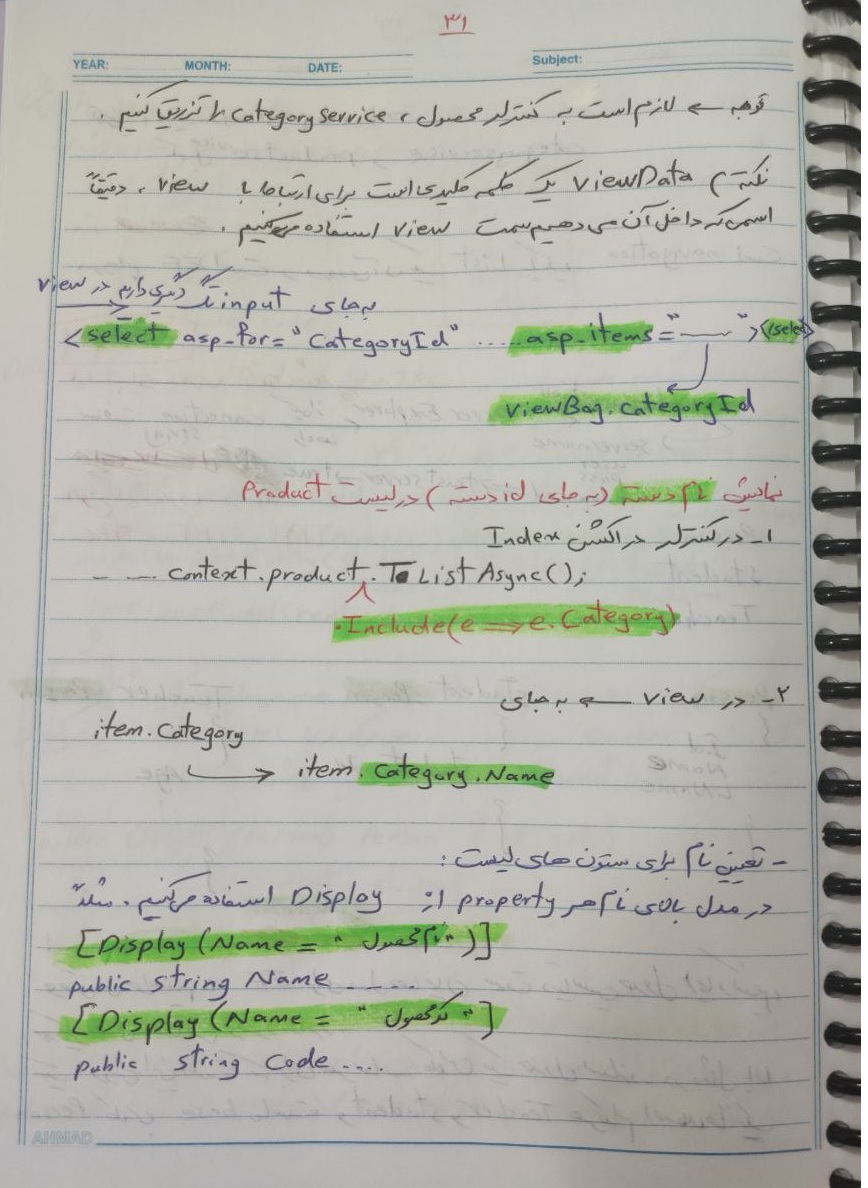 ۳۱
YEAR: MONTH: DATE: Subject:
توجه ← لازم است به کنترلر محصول ، categoryservice را تزریق کنیم .
نکته ) ViewData یک کلمه کلیدی است برای ارتباط با view ، دقیقاً
اسمی که داخل آن می دهیم سمت view استفاده می کنیم .
به جای input تگ دیگری داریم در view
<select asp_for="CategoryId" ..... asp_items="——"></select>
viewBag.categoryId
نمایش نام دسته (به جای id دسته) در لیست Product
۱- در کنترلر در اکشن Index
-- --- context.product.ToListAsync();
.Include(e => e.Category)
۲- در view ← به جای
item.Category
→ item.Category.Name
- تعیین نام برای ستون های لیست :
در مدل بالای نام هر property از Display استفاده می کنیم . مثلاً
[Display(Name = "نام محصول")]
public string Name .....
[Display(Name = "کد محصول"]
public string Code ....
AHMAD